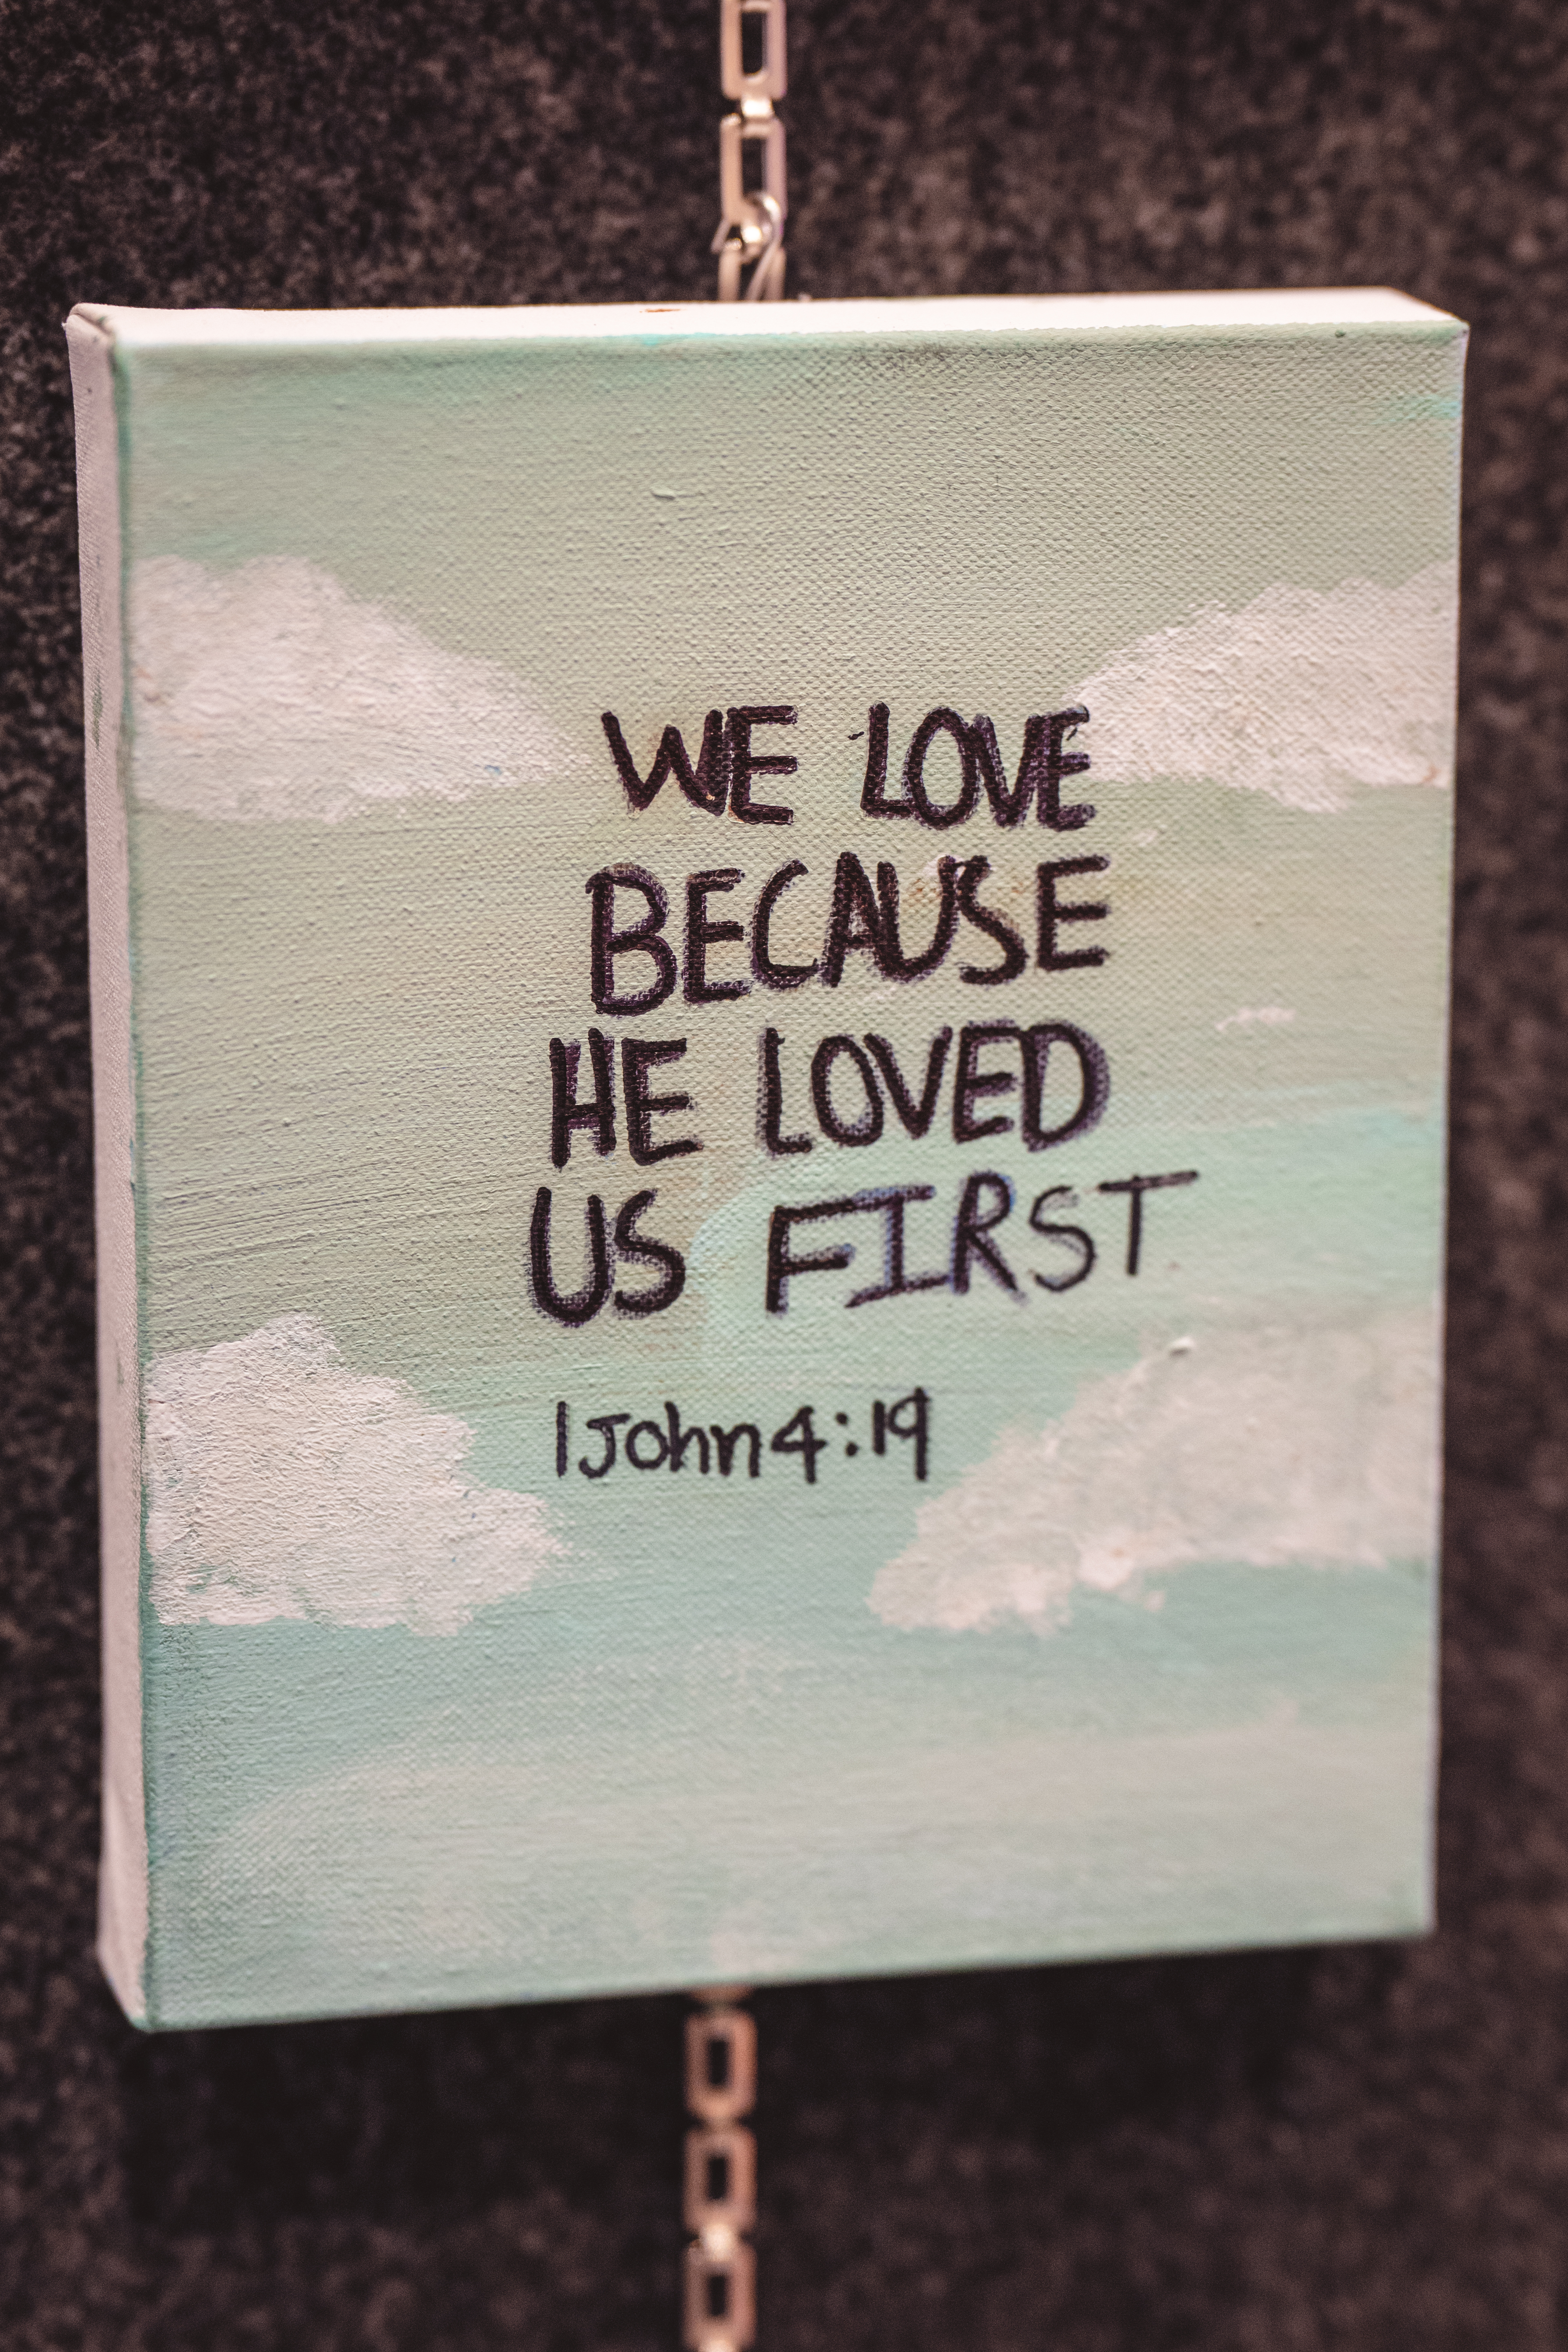 WE LOVE
BECAUSE
HE LOVED
US FIRST
1 John 4:19